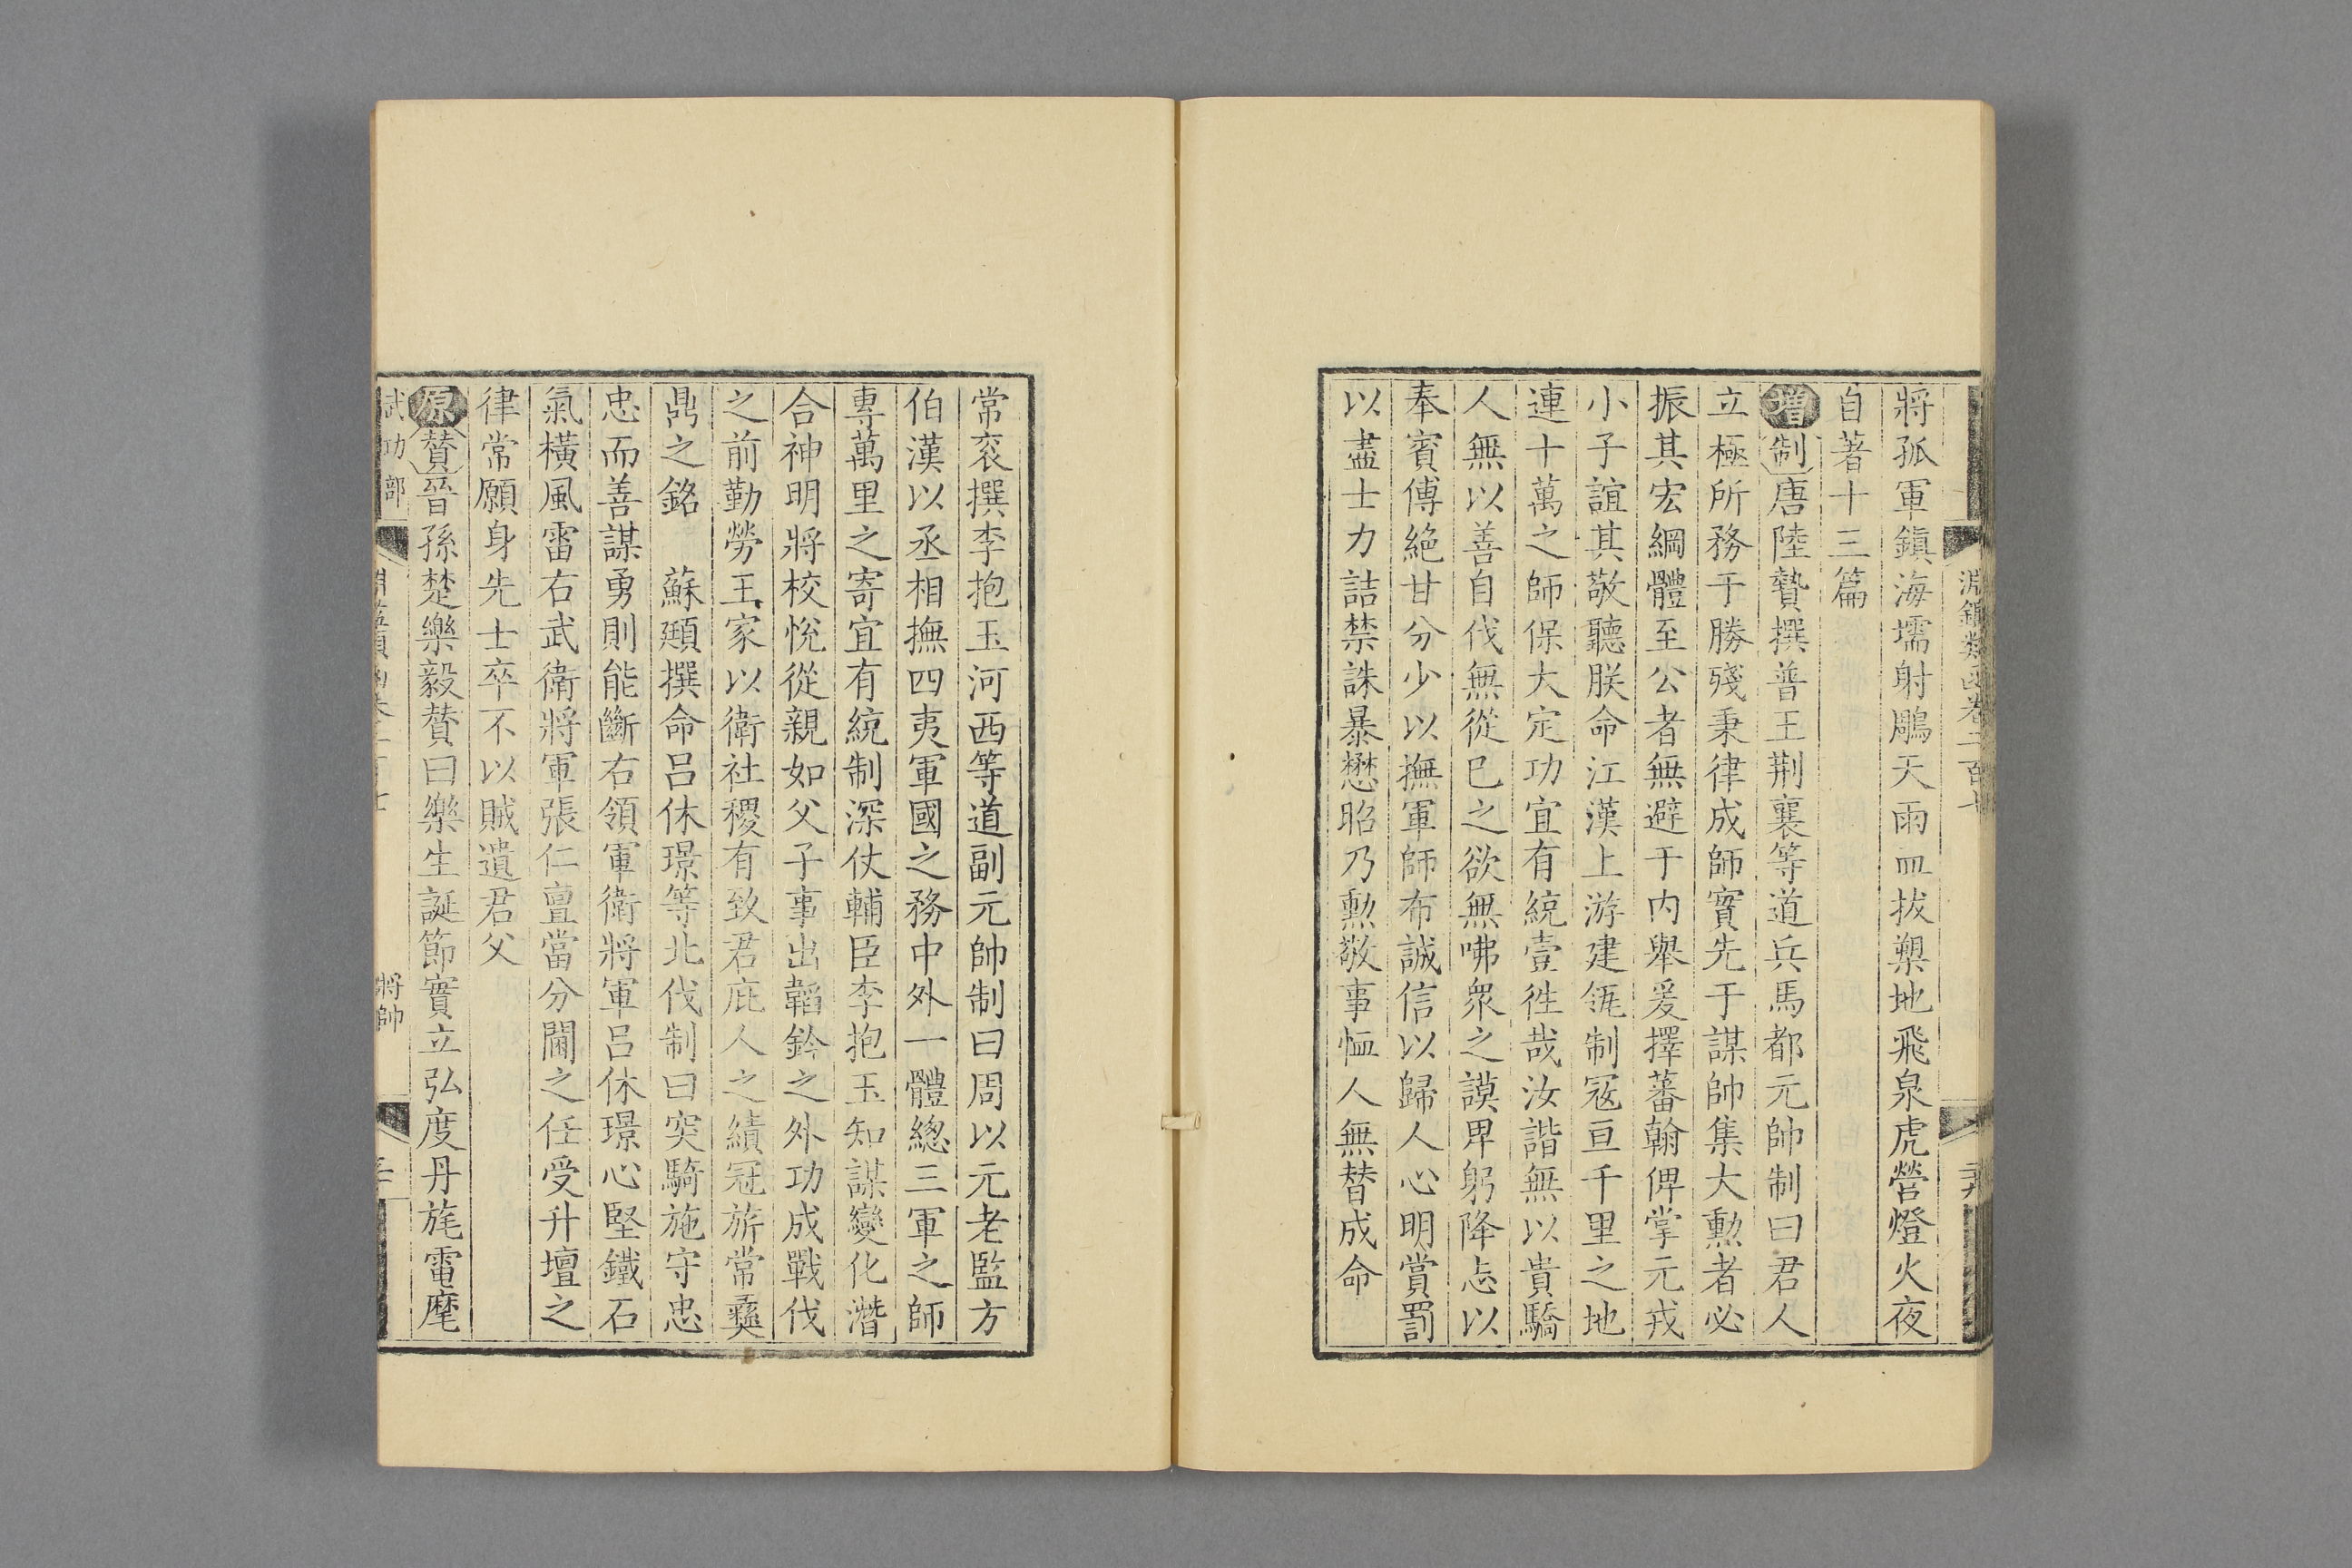 淵鑑類函卷二百十
將孤軍鎮海壖射鵰天雨血拔槊地飛泉虎營燈火夜
自著十三篇
增制唐陸贄撰普王荆襄等道兵馬都元帥制曰君人
立極所務于勝殘秉律成師實先于謀帥集大勲者必
振其宏綱體至公者無避于内舉爰擇蕃翰俾掌元戎
小子誼其敬聽朕命江漢上游建瓴制寇亘千里之地
連十萬之師保大定功宜有統壹徃哉汝諧無以貴驕
人無以善自伐無從已之欲無咈衆之謨畢躬降志以
奉賓傅絶甘分少以撫軍師布誠信以歸人心明賞罰
以盡士力詰禁誅暴懋昭乃勲敬事恤人無替成命
常衮撰李抱玉河西等道副元帥制曰周以元老監方
伯漢以丞相撫四夷軍國之務中外一體總三軍之師
專萬里之寄宜有統制深仗輔臣李抱玉知謀變化潛
合神明將校悅從親如父子事出韜鈐之外功成戰伐
之前勤勞王家以衛社稷有致君庇人之績冠旂常彞
鼎之銘　蘇頲撰命呂休璟等北伐制曰突騎施守忠
忠而善謀勇則能斷右領軍衛將軍呂休璟心堅鐵石
氣橫風雷右武衛將軍張仁亶當分閫之任受升壇之
律常願身先士卒不以賊遺君父
原贊晉孫楚樂毅贊曰樂生誕節實立弘度丹旄電麾
武功部
將帥